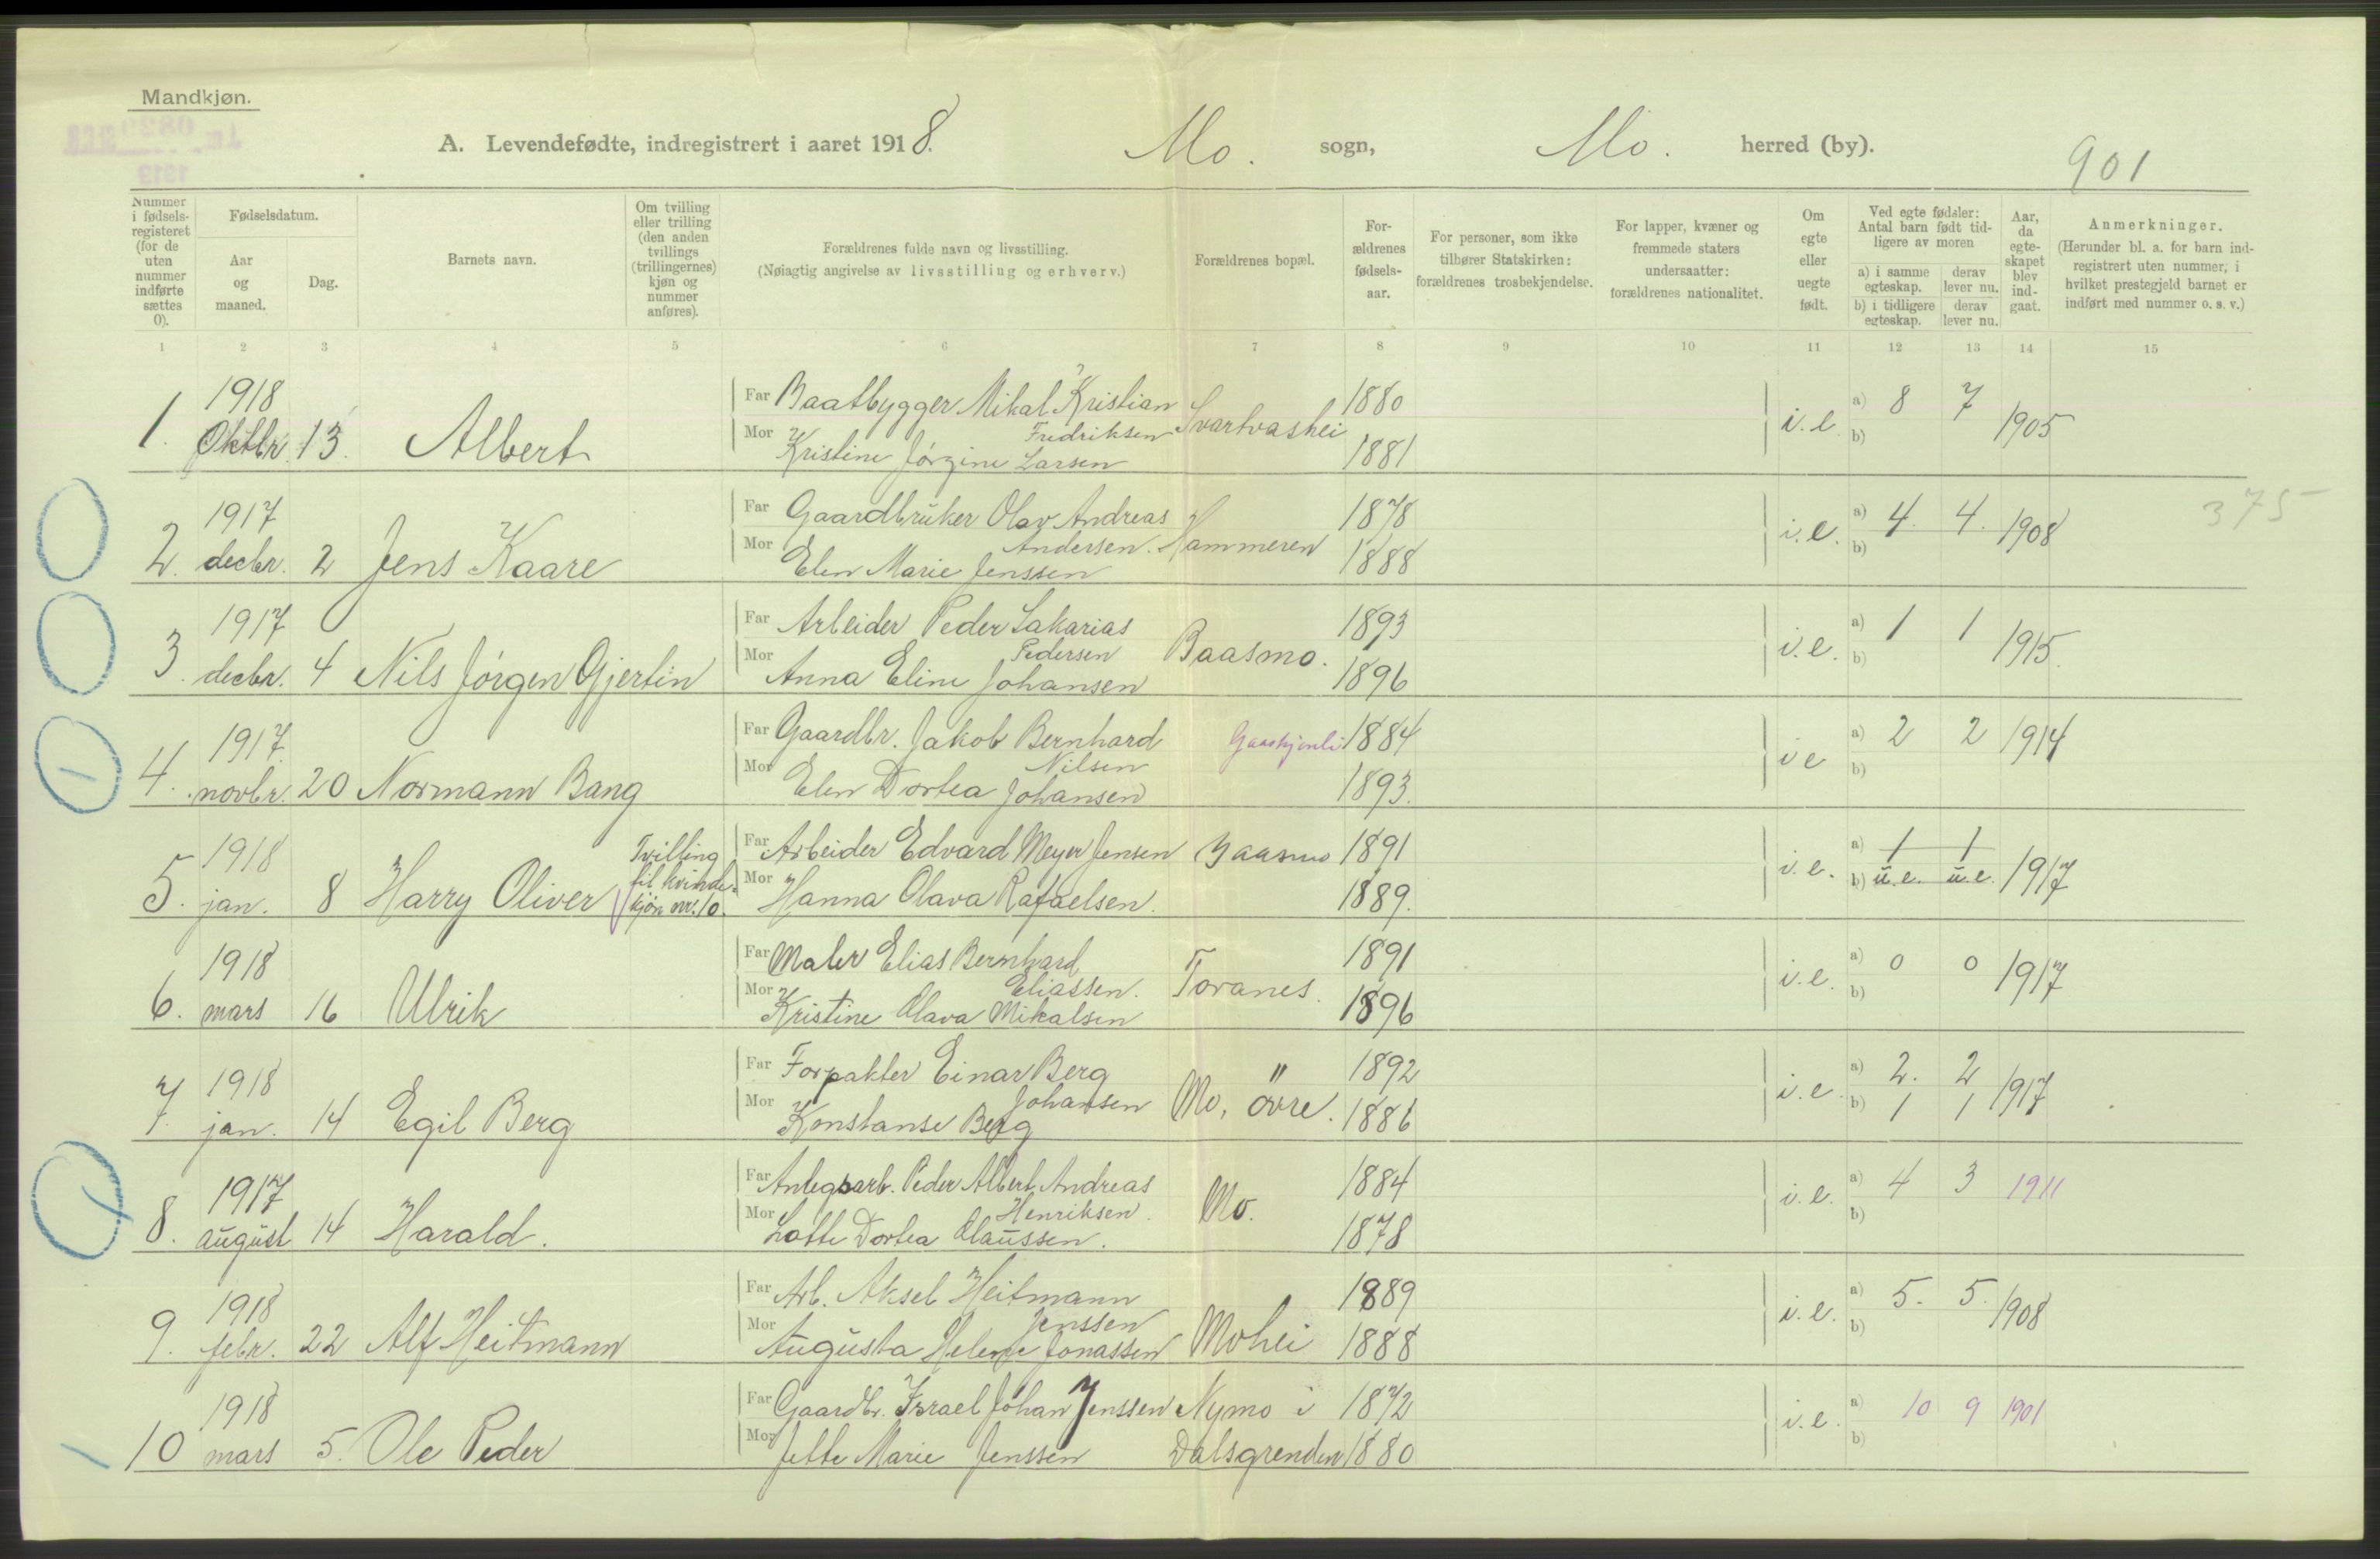 Mandkjøn.
A. Levendefødte, indregistrert i aaret 1918. Mo. sogn, Mo. herred (by). 901
Nummer i fødsels-registeret (for de uten nummer indførte sættes 0).
Fødselsdatum.
Aar og maaned.
Dag.
Barnets navn.
Om tvilling eller trilling (den anden tvillings (trillingernes) kjøn og nummer anføres).
Forældrenes fulde navn og livsstilling.
(Nøiagtig angivelse av livsstilling og erhverv.)
Forældrenes bopæl.
For-ældrenes fødsels-aar.
For personer, som ikke tilhører Statskirken: forældrenes trosbekjendelse.
For lapper, kvæner og fremmede staters undersaatter: forældrenes nationalitet.
Om egte eller uegte født.
Ved egte fødsler: Antal barn født tid-ligere av moren
a) i samme egteskap. derav lever nu.
b) i tidligere egteskap. derav lever nu.
Aar, da egte-skapet blev ind-gaat.
Anmerkninger.
(Herunder bl. a. for barn ind-registrert uten nummer, i hvilket prestegjeld barnet er indført med nummer o. s. v.)
1 2 3 4 5 6 7 8 9 10 11 12 13 14 15
1918 Far Baatbygger Mikal Kristian Fredriksen 1880 a) 8 7
1. Oktbr. 13. Albert Mor Kristine Jørgine Larsen Svartvashei 1881 i.e. b) 1905
1917 Far Gaardbruker Olav Andreas Andersen. 1878 a) 4. 4. 375
2. decbr. 2 Jens Kaare Mor Elen Marie Jenssen Hammeren 1888 i.e. b) 1908
1917 Far Arbeider Peder Sakarias Pedersen 1893 a) 1 1
3. decbr. 4 Nils Jørgen Gjertin Mor Anna Eline Johansen Baasmo. 1896 i.e. b) 1915.
1917 Far Gaardbr. Jakob Bernhard Nilsen 1884 a) 2 2 1914
4. novbr. 20 Normann Bang Mor Elen Dortea Johansen 1893. i e b)
1918 Tvilling til kvinde-kjøn nr. 10. Far Arbeider Edvard Meyer Jensen Baasmo 1891 a) 1 1
5. jan. 8 Harry Oliver Mor Hanna Olava Rafaelsen. 1889. i.e. b) u.e. u.e. 1917
1918 Far Maler Elias Bernhard Eliassen. 1891 a) 0 0
6. mars 16 Ulrik Mor Kristine Olava Mikalsen Toranes. 1896 i.e. b) 1917
1918 Far Forpakter Einar Berg Johansen " 1892 a) 2. 2
7. jan. 14 Egil Berg Mor Konstanse Berg Mo, øvre. 1886 i.e. b) 1 1 1917
1917 Far Anlegsarb. Peder Albert Andreas Henriksen. 1884 a) 4 3 1911
8. august 14 Harald. Mor Lotte Dortea Olaussen. Mo. 1878 i.e. b)
1918 Far Arb. Aksel Heitmann Jenssen 1889 a) 5. 5.
9. febr. 22 Alf Heitmann Mor Augusta Helene Jonassen Mohei 1888 i.e. b) 1908
1918 Far Gaardbr. Israel Johan Jenssen Nymo i 1872 a) 10 9 1901
10 mars 5. Ole Peder Mor Jette Marie Jenssen Dalsgrenden 1880 i.e. b)